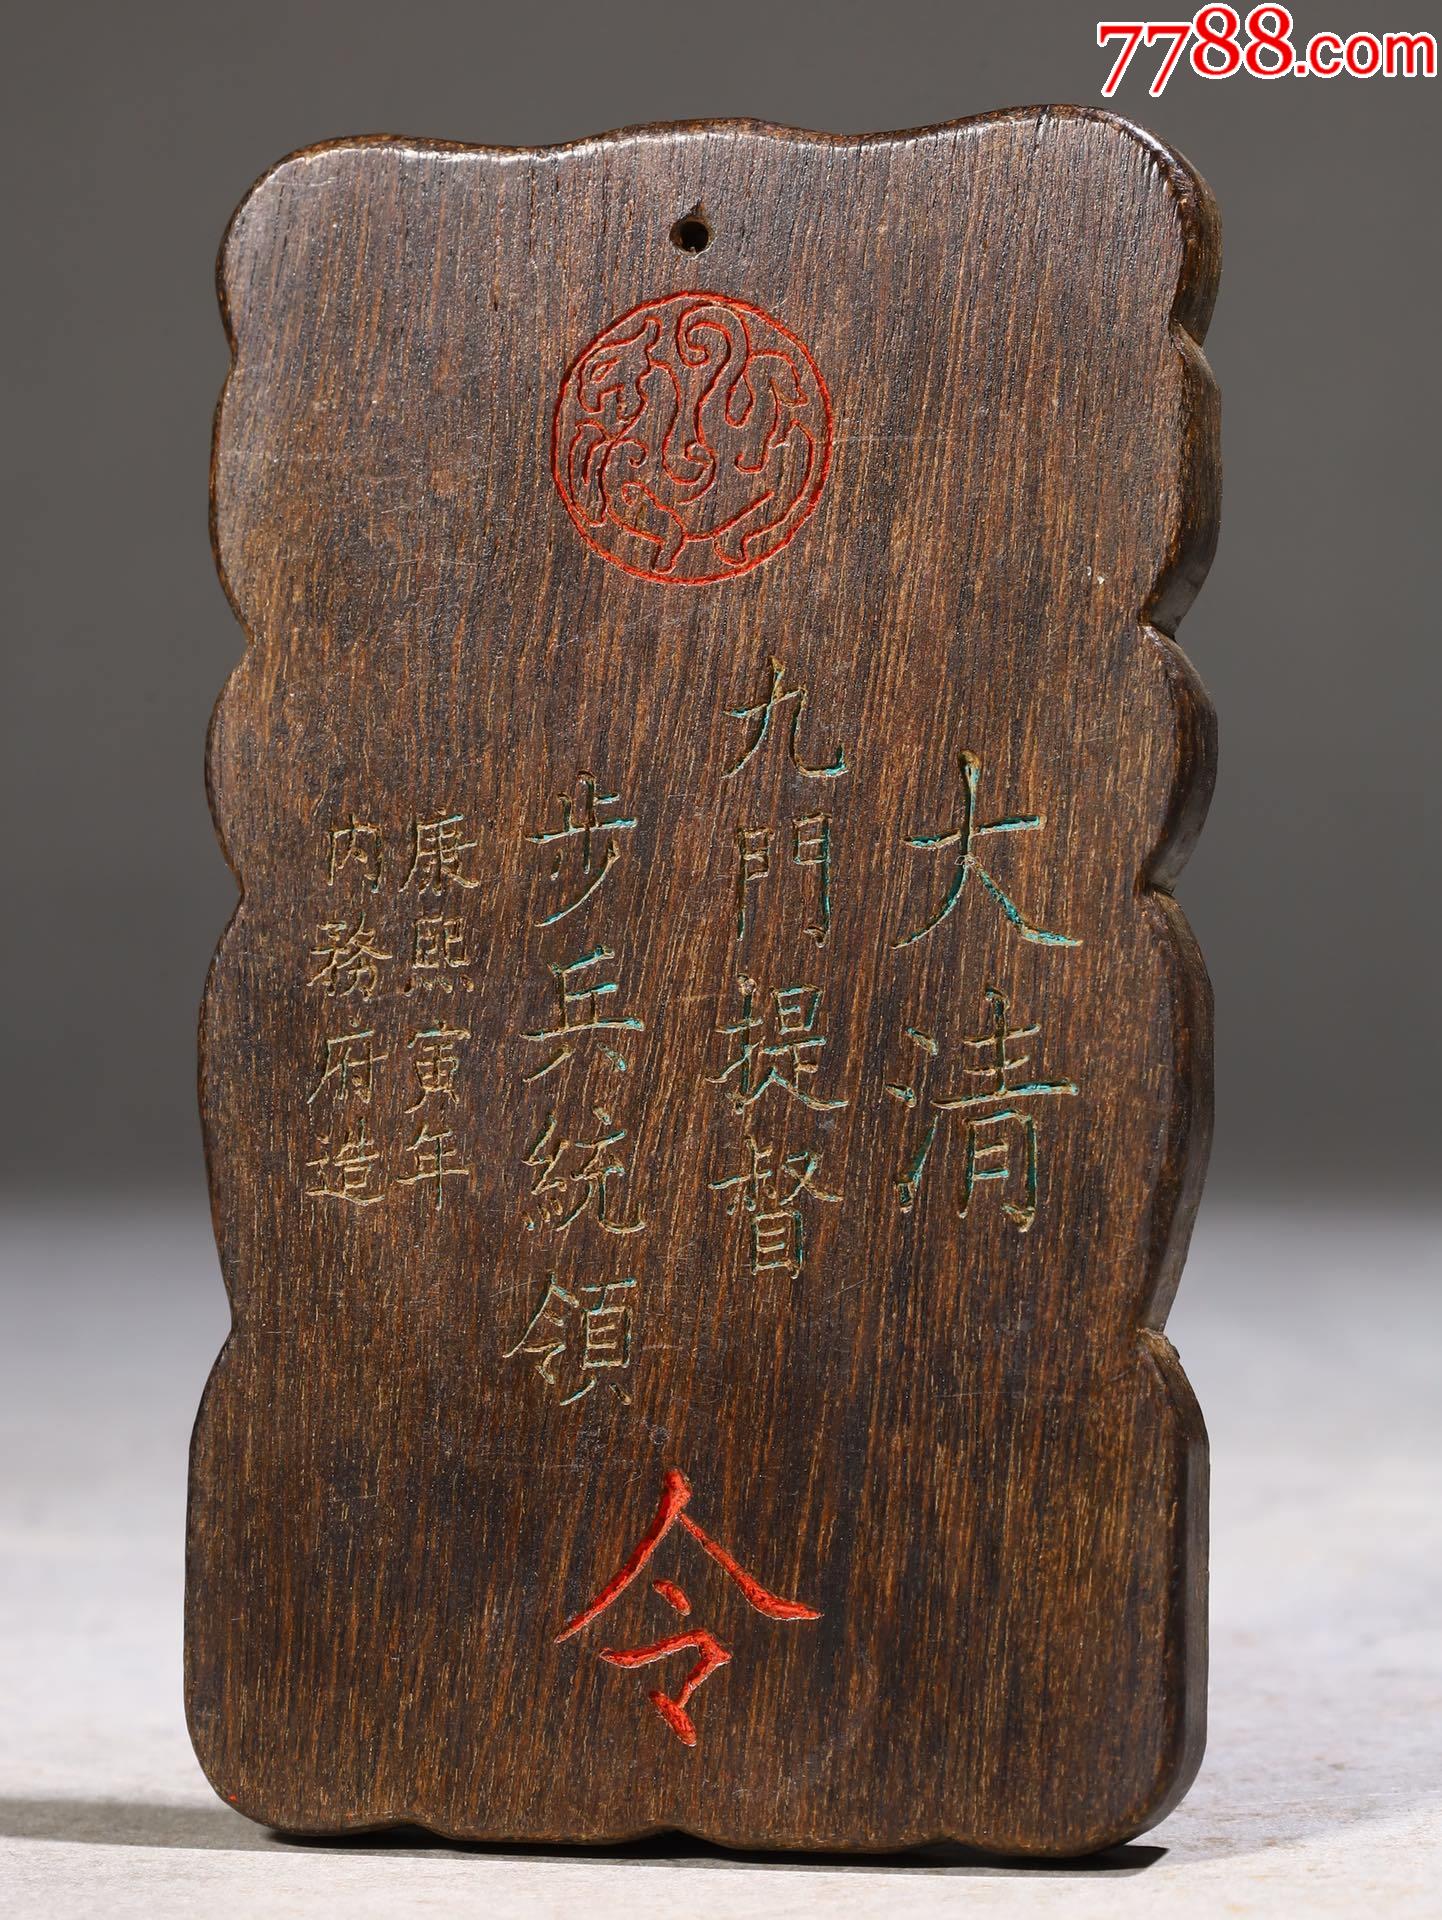 7788.com
大清
九門提督
步兵統領
康熙寅年
內務府造
令